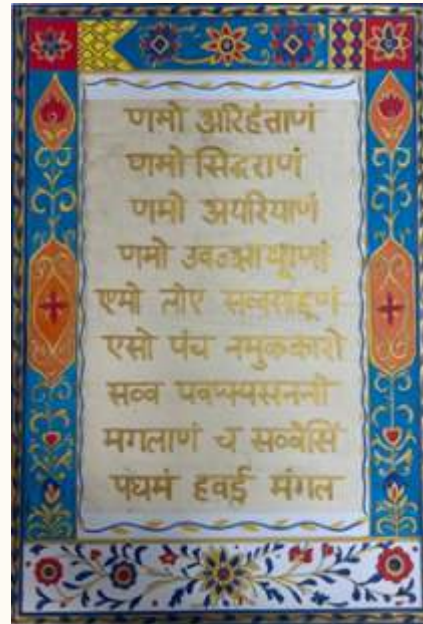 णमो अरिहंताणं
णमो सिद्धाराणं
णमो अयरियाणं
णमो उवज्झायाणं
एमो लोए सव्वसाहूणं
एसो पंच नमुककारो
सव्व
मगलाणं च सव्वेसिं
पघमं हवई मंगल